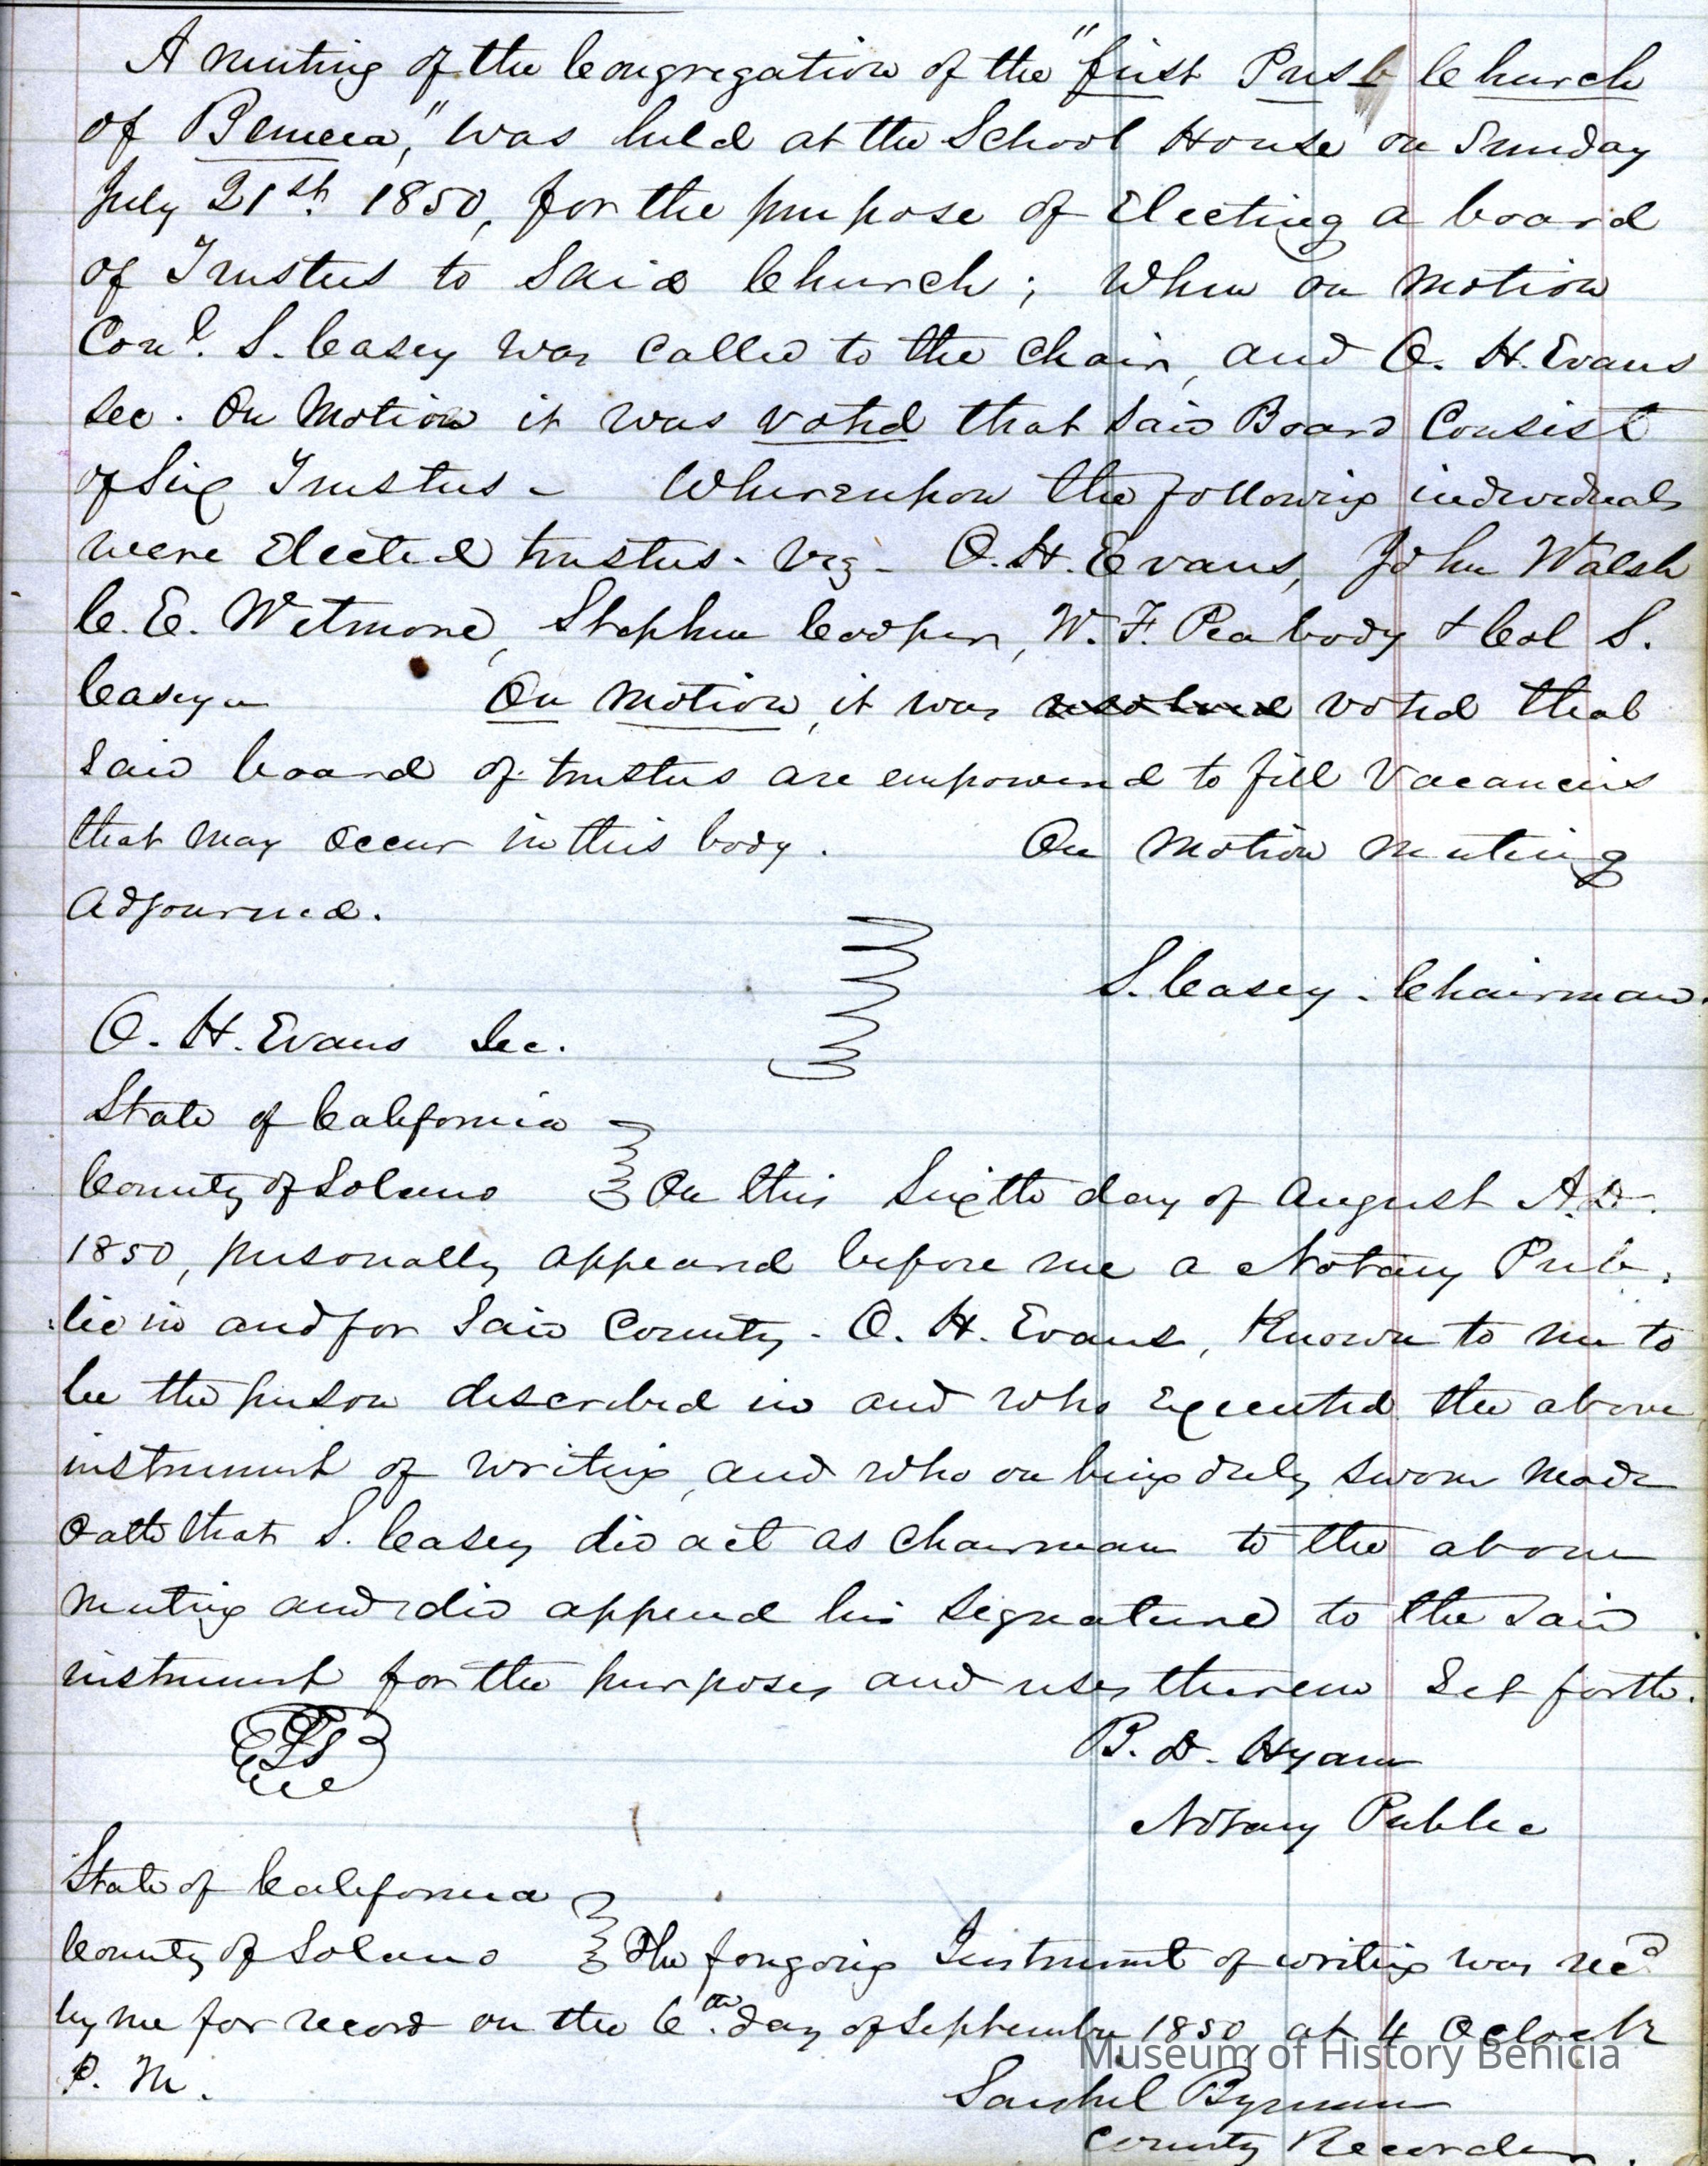 A meeting of the Congregation of the "first Presb Church
of Benicia," was held at the School House on Sunday
July 21st. 1850, for the purpose of Electing a board
of Trustees to Said Church; When on motion
Conl. S. Casey was called to the Chair, and O. H. Evans
Sec. On Motion it was voted that Said Board Consist
of Six Trustees - Whereupon the following individuals
were Elected trustees - viz - O. H. Evans, John Walsh
C. E. Wetmore, Stephen Cooper, W. F. Peabody & Col S.
Casey - On Motion, it was resolved voted that
Said board of trustees are empowered to fill Vacancies
that may occur in this body. On Motion Meeting
Adjourned.
S. Casey - Chairman.
O. H. Evans Sec.
State of California
County of Solano On this Sixth day of August A.D.
1850, personally appeared before me a Notary Pub-
:lic in and for Said County - O. H. Evans, Known to me to
be the person described in and who Executed the above
instrument of writing, and who on being duly sworn made
Oath that S. Casey did act as Chairman to the above
Meeting and did append his Signature to the Said
instrument for the purposes and uses therein Set forth.
LS
B. D. Hyam
Notary Public
State of California
County of Solano The foregoing Instrument of writing was recd
by me for record on the 6th. day of September 1850 at 4 OClock
P. M.
Museum of History Benicia
County Recorder.